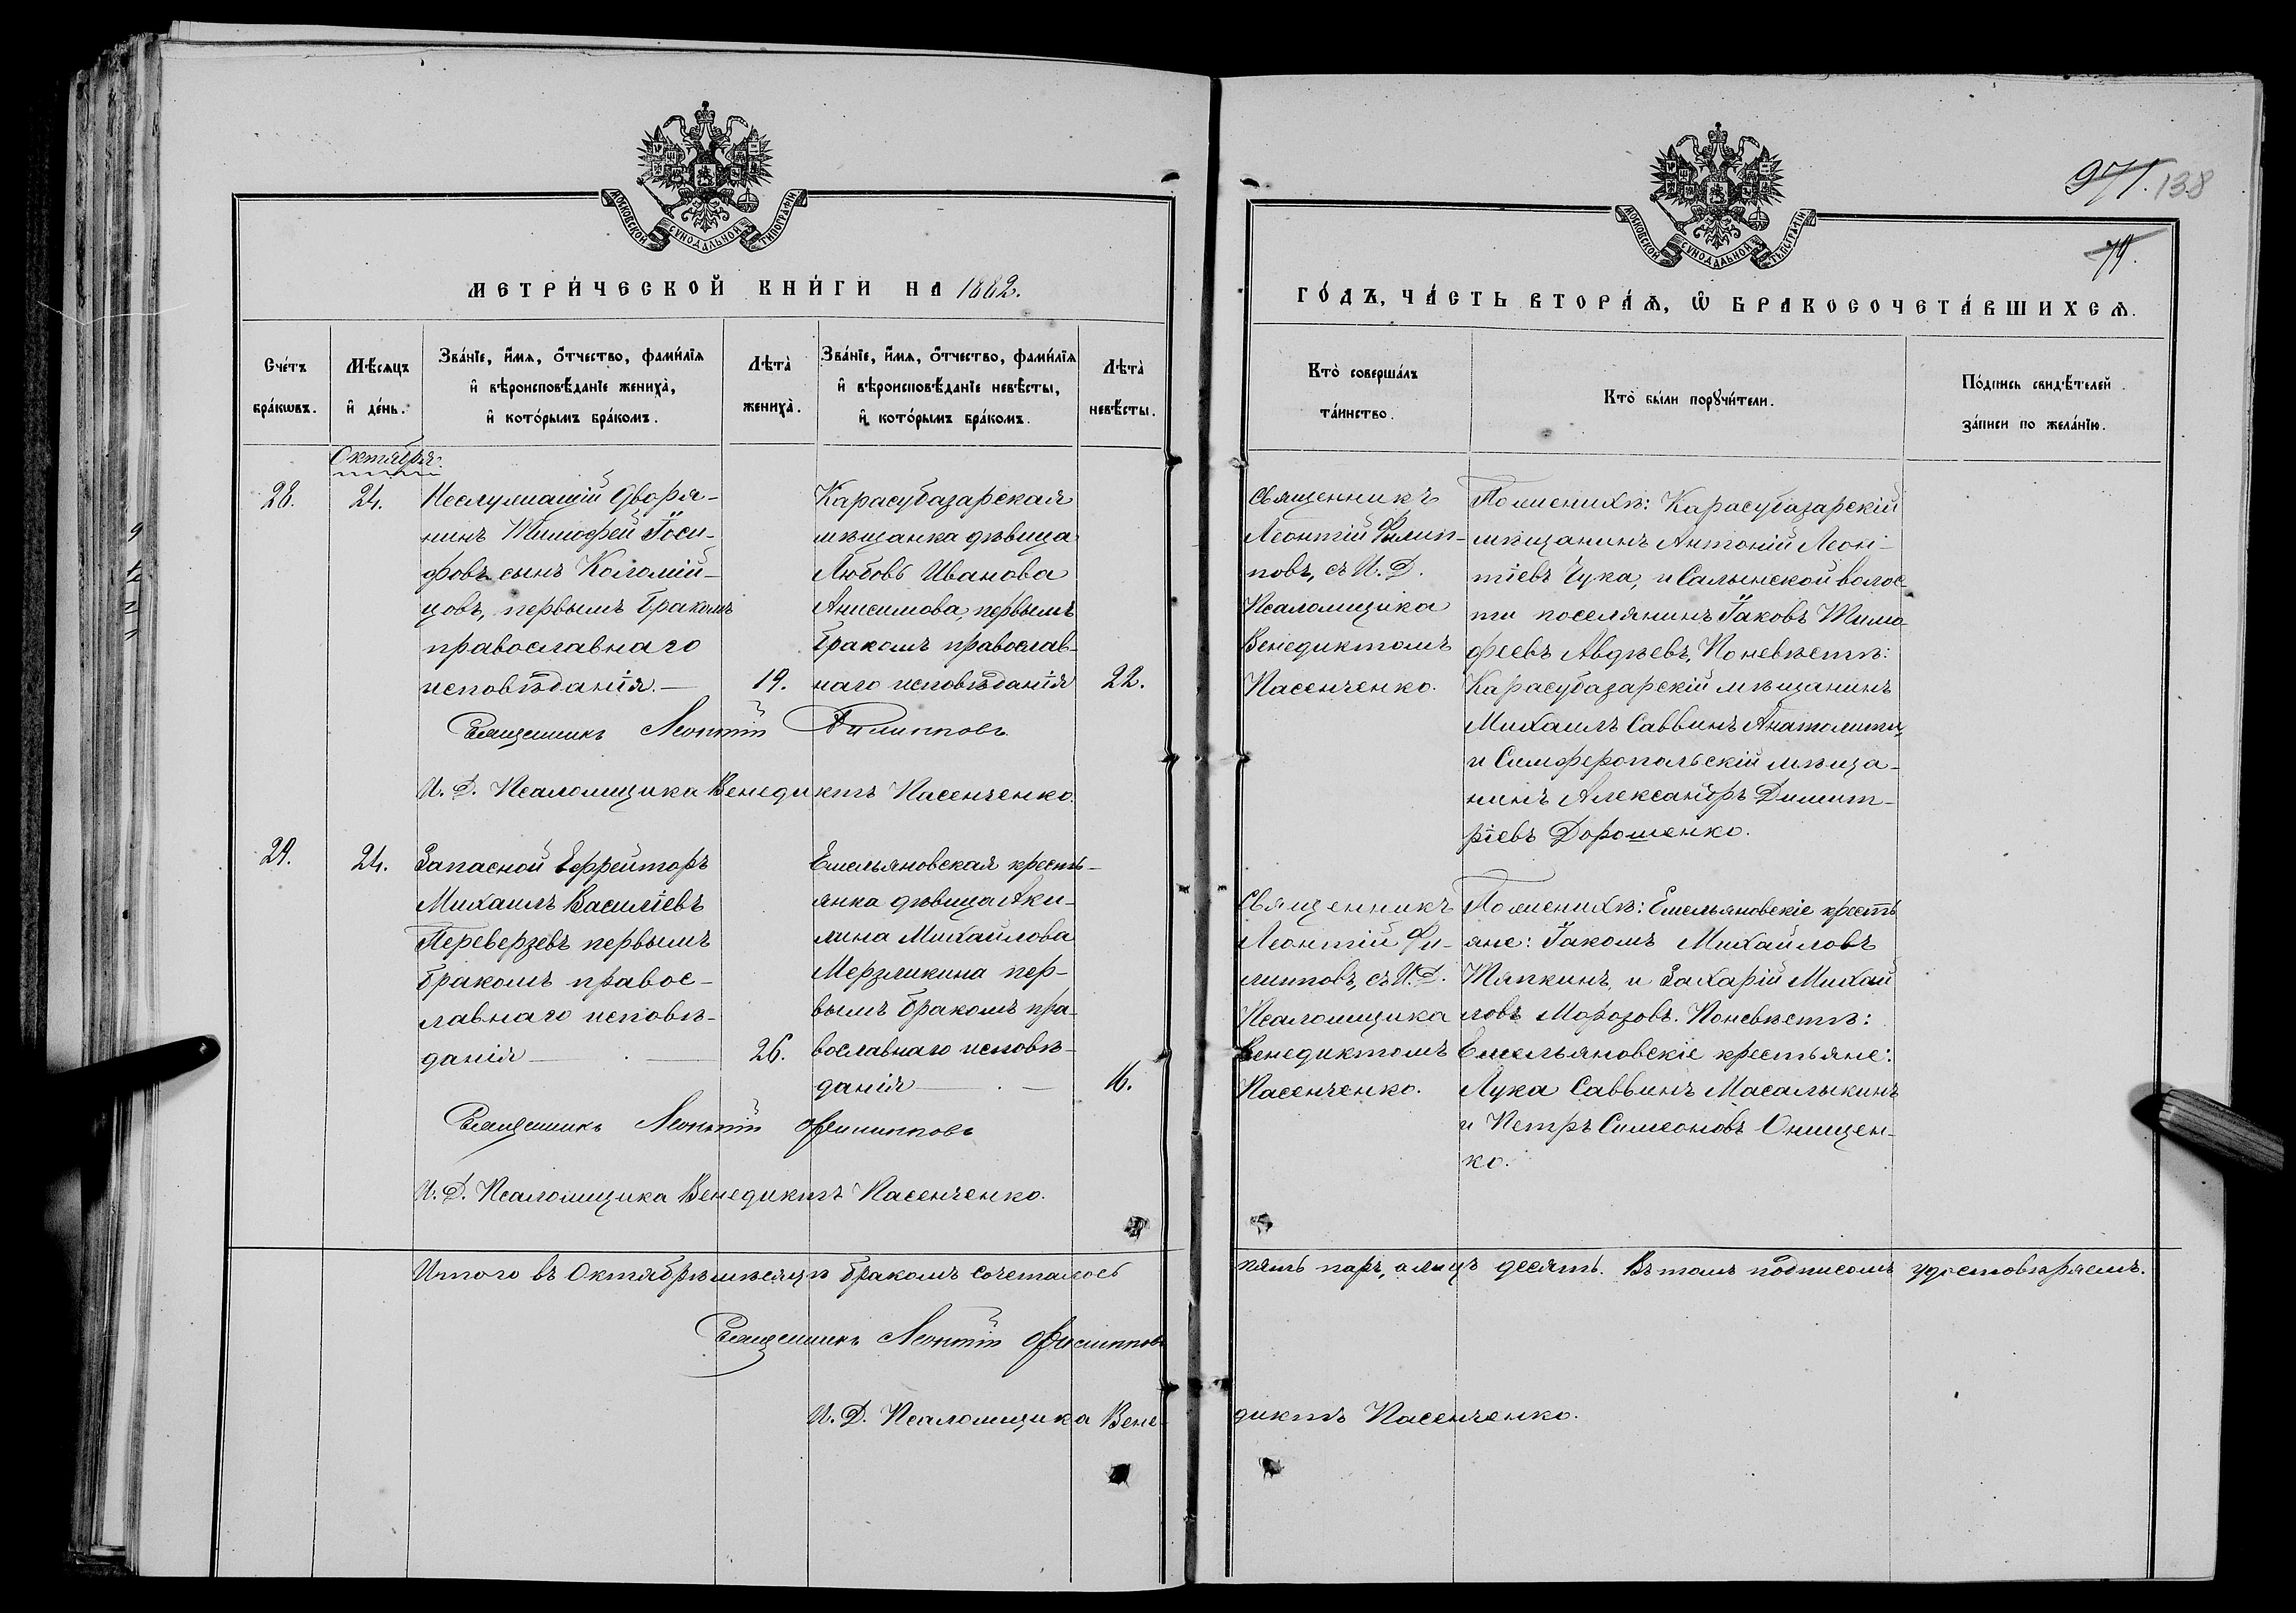 МОСКОВСКОЙ СѴНОДАЛЬНОЙ ТИПОГРАФІИ
МЕТРИ́ЧЕСКОЙ КНИ́ГИ НА 1882.
Сче́тъ бра́кѡвъ.
Мѣ́сяцъ и҆ де́нь.
Зва́нїе, и҆́мѧ, ѻ҆́тчество, фами́лїѧ
и҆ вѣроисповѣ́данїе жениха̀,
и҆ кото́рымъ бра́комъ.
Лѣта̀ жениха̀.
Зва́нїе, и҆́мѧ, ѻ҆́тчество, фами́лїѧ
и҆ вѣроисповѣ́данїе невѣ́сты,
и҆ кото́рымъ бра́комъ.
Лѣта̀ невѣ́сты.
Октября.
28.
24.
Неслужащій дворя-
нинъ Тимофей Іоси-
фовъ сынъ Коломій-
цовъ, первымъ бракомъ
православнаго
исповѣданія.—
19.
Карасубазарская
мѣщанка дѣвица
Любовь Иванова
Анисимова, первымъ
бракомъ православ-
наго исповѣданія
22.
Священникъ Леонтій Филипповъ
И. Д. Псаломщика Венедиктъ Пасенченко.
29.
24.
Запасной Ефрейторъ
Михаилъ Василіевъ
Переверзевъ первымъ
бракомъ правос-
лавнаго исповѣ-
данія —
26.
Емельяновская кресть-
янка дѣвица Аки-
лина Михайлова
Мерзликина пер-
вымъ бракомъ пра-
вославнаго исповѣ-
данія —
16.
Священникъ Леонтій Филипповъ
И. Д. Псаломщика Венедиктъ Пасенченко.
Итого въ Октябрѣ мѣсяцѣ бракомъ сочеталось
Священникъ Леонтій Филипповъ
И. Д. Псаломщика Вене-
971. 138
79.
МОСКОВСКОЙ СѴНОДАЛЬНОЙ ТИПОГРАФІИ
ГО́ДЪ, ЧА́СТЬ ВТОРА́Ѧ, Ѡ҆ БРАКОСОЧЕТА́ВШИХСѦ.
Кто̀ соверша́лъ
та́инство.
Кто̀ бы́ли порꙋчи́тели.
По́дпись свидѣ́телей
за́писи по жела́нїю.
Священникъ
Леонтій Филип-
повъ, съ И. Д.
Псаломщика
Венедиктомъ
Пасенченко.
По женихѣ: Карасубазарскій
мѣщанинъ Антоній Леон-
тіевъ Чука, и Салынской волос-
ти поселянинъ Іаковъ Тимо
феевъ Авдѣевъ, По невѣстѣ:
Карасубазарскій мѣщанинъ
Михаилъ Саввинъ
и Симферопольскій мѣща-
нинъ Александръ Димит-
ріевъ Дорошенко.
Священникъ
Леонтій Фи-
липповъ, съ И. Д.
Псаломщика
Венедиктомъ
Пасенченко.
По женихѣ: Емельяновскіе кресть
яне: Іаковъ Михайловъ
Тяпкинъ, и Захарій Михай
ловъ Морозовъ. По невѣстѣ:
Емельяновскіе крестьяне:
Лука Саввинъ Масалыкинъ
и Петръ Симеоновъ Онищен-
ко.
пять паръ, а лицъ десять. Въ томъ подписомъ удостовѣряемъ.
диктъ Пасенченко.